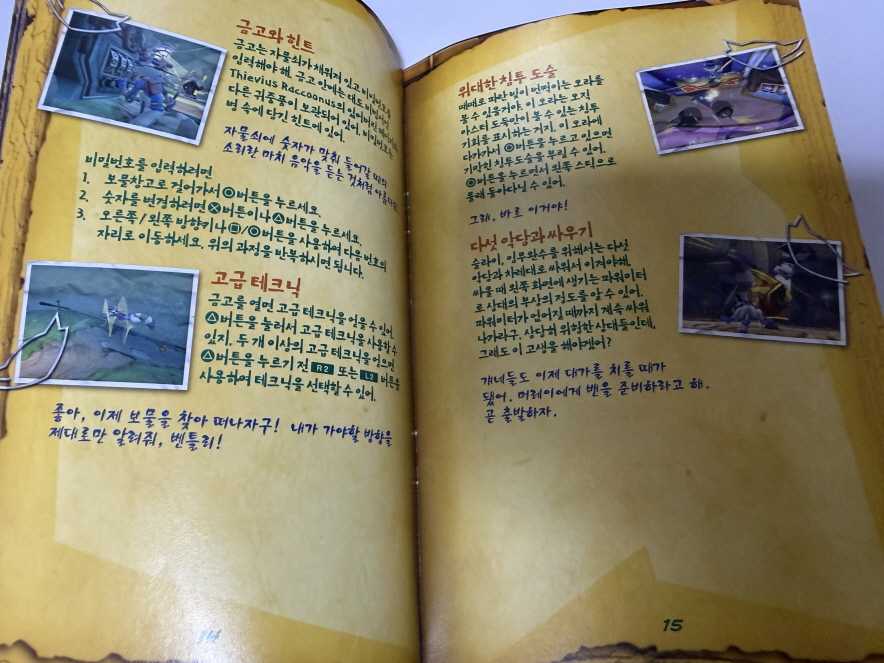 금고와 힌트
금고는 자물쇠가 채워져 있고 비밀번호를
입력해야 해. 금고 안에는 대도 비법서인
Thievius Raccoonus의 잃어버린 페이지나
다른 귀중품이 보관되어 있어. 비밀번호는
병 속에 담긴 힌트에 있어.
자물쇠에 숫자가 맞춰 들어갈 때의
소리란 마치 음악을 듣는 것처럼 아름다워.
비밀번호를 입력하려면
1. 보물창고로 걸어가서 ◎버튼을 누르세요.
2. 숫자를 변경하려면 ⓧ버튼이나 △버튼을 누르세요.
3. 오른쪽/왼쪽 방향키나 □/○버튼을 사용하여 다음 번호의
자리로 이동하세요. 위의 과정을 반복하시면 됩니다.
고급 테크닉
금고를 열면 고급 테크닉을 얻을 수 있어.
△버튼을 눌러서 고급 테크닉을 사용할 수
있지. 두 개 이상의 고급 테크닉을 얻으면
△버튼을 누르기 전 R2 또는 L2 버튼을
사용하여 테크닉을 선택할 수 있어.
좋아, 이제 보물을 찾아 떠나자구! 내가 가야할 방향을
제대로만 알려줘, 벤틀리!
14
위대한 침투 도술
때때로 파란 빛이 번쩍이는 오라를
볼 수 있을거야. 이 오라는 오직
마스터 도둑만이 볼 수 있는 침투
기회를 표시하는 거지. 이 오라에
다가가서 ○버튼을 누르고 있으면
기막힌 침투 도술을 부릴 수 있어.
○버튼을 누르면서 왼쪽 스틱으로
몰래 돌아다닐 수 있어.
그래, 바로 이거야!
다섯 악당과 싸우기
슬라이, 임무완수를 위해서는 다섯
악당과 차례대로 싸워서 이겨야해.
싸울 때 왼쪽 화면에 생기는 파워미터
로 상대의 부상의 정도를 알 수 있어.
파워미터가 없어질 때까지 계속 싸워
나가라구. 상당히 위험한 상대들인데,
그래도 이 고생을 해야겠어?
걔네들도 이제 대가를 치를 때가
됐어. 머레이에게 밴을 준비하라고 해.
곧 출발하자.
15